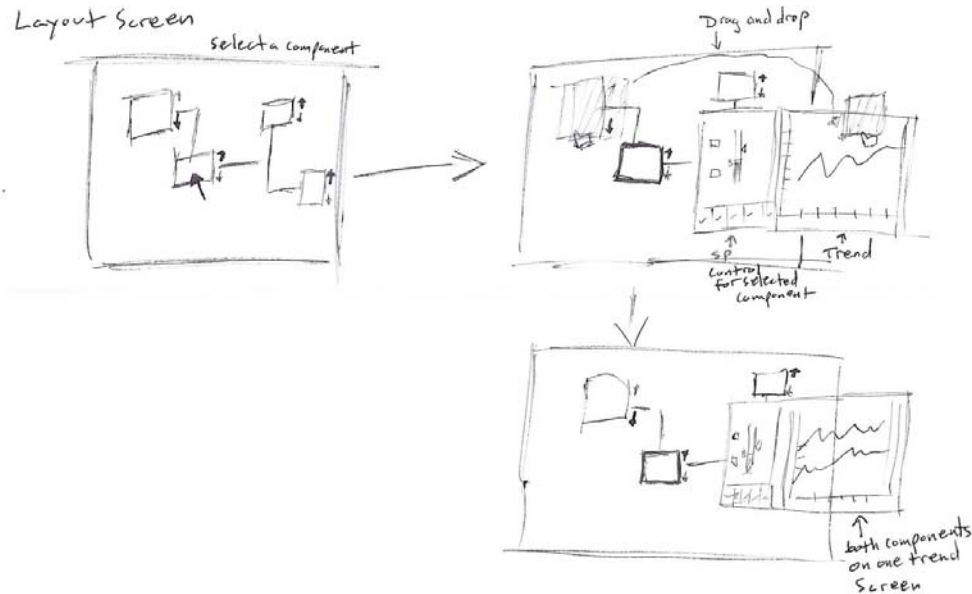 Layout Screen
Select a component
Drag and drop
SP
Trend
Control
for selected
component
both components
on one trend
Screen